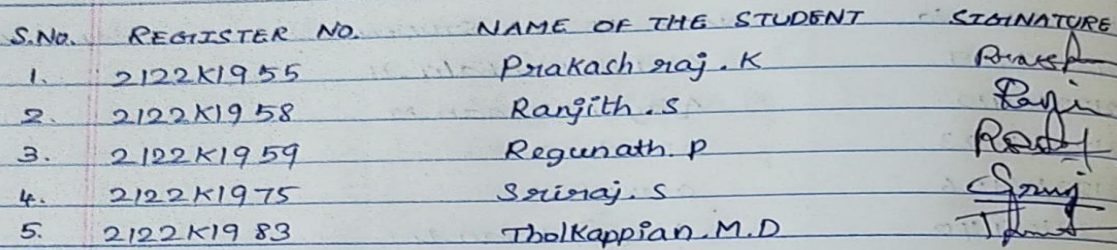 S.No. REGISTER NO. NAME OF THE STUDENT SIGNATURE
1. 2122K1955 Prakash raj. K
2. 2122K1958 Ranjith. S
3. 2122K1959 Regunath. P
4. 2122K1975 Sriraj. S
5. 2122K1983 Tholkappian. M.D